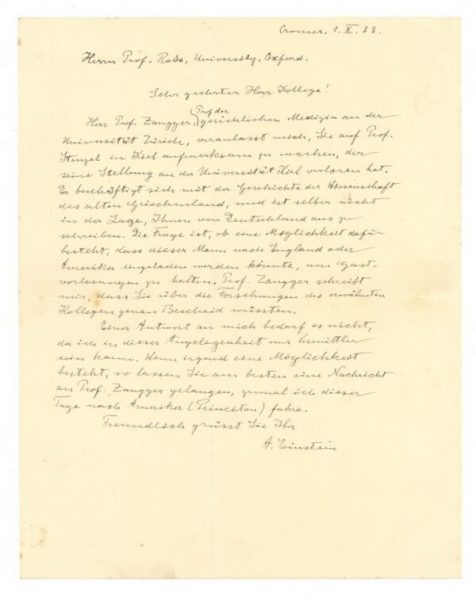 Cromer. 1. X. 33.
Herrn Prof. Ross, University, Oxford.
Sehr geehrter Herr Kollege!
Herr Prof. Zangger, Prof. der gerichtlichen Medizin an der
Universität Zürich, veranlasst mich, Sie auf Prof.
Stenzel in Kiel aufmerksam zu machen, der
seine Stellung an der Universität Kiel verloren hat.
Er beschäftigt sich mit der Geschichte der Wissenschaft
des alten Griechenland, und ist selber nicht
in der Lage, Ihnen von Deutschland aus zu
schreiben. Die Frage ist, ob eine Möglichkeit dafür
besteht, dass dieser Mann nach England oder
Amerika eingeladen werden könnte, um Gast-
vorlesungen zu halten. Prof. Zangger schreibt
mir, dass Sie über die Forschungen des erwähnten
Kollegen genau Bescheid wüssten.
Einer Antwort an mich bedarf es nicht,
da ich in dieser Angelegenheit nur Vermittler
sein kann. Wenn irgend eine Möglichkeit
besteht, so lassen Sie am besten eine Nachricht
an Prof. Zangger gelangen, zumal ich dieser
Tage nach Amerika (Princeton) fahre.
Freundlich grüsst Sie Ihr
A. Einstein